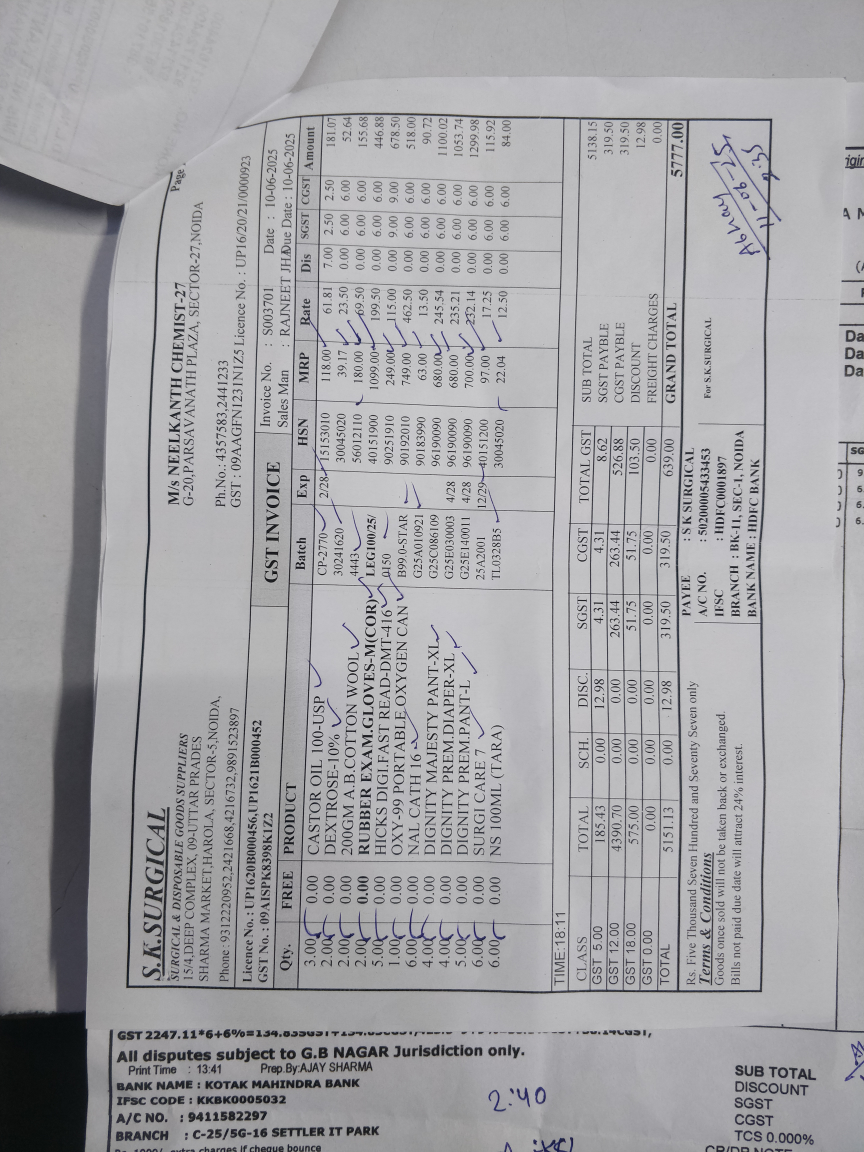 Page
S.K.SURGICAL
SURGICAL & DISPOSABLE GOODS SUPPLIERS
15/4,DEEP COMPLEX, 09-UTTAR PRADES
SHARMA MARKET,HAROLA, SECTOR-5,NOIDA,
Phone : 9312220952,2421668,4216732,9891523897
Licence No. : UP1620B000456,UP1621B000452
GST No. : 09AISPK8398K1Z2
M/s NEELKANTH CHEMIST-27
G-20,PARSAVANATH PLAZA, SECTOR-27,NOIDA
Ph.No.: 4357583,2441233
GST : 09AAGFN1231N1Z5 Licence No. : UP16/20/21/0000923
GST INVOICE
Invoice No. : S003701 Date : 10-06-2025
Sales Man : RAJNEET JHA Due Date : 10-06-2025
Qty. FREE PRODUCT Batch Exp HSN MRP Rate Dis SGST CGST Amount
3.00 0.00 CASTOR OIL 100-USP CP-2770 2/28 15153010 118.00 61.81 7.00 2.50 2.50 181.07
2.00 0.00 DEXTROSE-10% 30241620 30045020 39.17 23.50 0.00 6.00 6.00 52.64
2.00 0.00 200GM A.B.COTTON WOOL 4443 56012110 180.00 69.50 0.00 6.00 6.00 155.68
2.00 0.00 RUBBER EXAM.GLOVES-M(COR) LEG100/25/ 40151900 1099.00 199.50 0.00 6.00 6.00 446.88
5.00 0.00 HICKS DIGI.FAST READ-DMT-416 0150 90251910 249.00 115.00 0.00 9.00 9.00 678.50
1.00 0.00 OXY-99 PORTABLE.OXYGEN CAN B99.0-STAR 90192010 749.00 462.50 0.00 6.00 6.00 518.00
6.00 0.00 NAL CATH 16 G25A010921 90183990 63.00 13.50 0.00 6.00 6.00 90.72
4.00 0.00 DIGNITY MAJESTY PANT-XL G25C086109 96190090 680.00 245.54 0.00 6.00 6.00 1100.02
4.00 0.00 DIGNITY PREM.DIAPER-XL G25E030003 4/28 96190090 680.00 235.21 0.00 6.00 6.00 1053.74
5.00 0.00 DIGNITY PREM.PANT-L G25E140011 4/28 96190090 700.00 232.14 0.00 6.00 6.00 1299.98
6.00 0.00 SURGI CARE 7 25A2001 12/29 40151200 97.00 17.25 0.00 6.00 6.00 115.92
6.00 0.00 NS 100ML (TARA) TL0328B5 30045020 22.04 12.50 0.00 6.00 6.00 84.00
TIME:18:11
CLASS TOTAL SCH. DISC. SGST CGST TOTAL GST
GST 5.00 185.43 0.00 12.98 4.31 4.31 8.62
GST 12.00 4390.70 0.00 0.00 263.44 263.44 526.88
GST 18.00 575.00 0.00 0.00 51.75 51.75 103.50
GST 0.00 0.00 0.00 0.00 0.00 0.00 0.00
TOTAL 5151.13 0.00 12.98 319.50 319.50 639.00
SUB TOTAL 5138.15
SGST PAYBLE 319.50
CGST PAYBLE 319.50
DISCOUNT 12.98
FREIGHT CHARGES 0.00
GRAND TOTAL 5777.00
Rs. Five Thousand Seven Hundred and Seventy Seven only
Terms & Conditions
Goods once sold will not be taken back or exchanged.
Bills not paid due date will attract 24% interest.
PAYEE : S K SURGICAL
A/C NO. : 50200005433453
IFSC : HDFC0001897
BRANCH : BK-11, SEC-1, NOIDA
BANK NAME : HDFC BANK
For S.K.SURGICAL
Abhay
11-06-25
All disputes subject to G.B NAGAR Jurisdiction only.
Print Time : 13:41 Prep.By:AJAY SHARMA
BANK NAME : KOTAK MAHINDRA BANK
IFSC CODE : KKBK0005032
A/C NO. : 9411582297
BRANCH : C-25/5G-16 SETTLER IT PARK
2:40
SUB TOTAL
DISCOUNT
SGST
CGST
TCS 0.000%